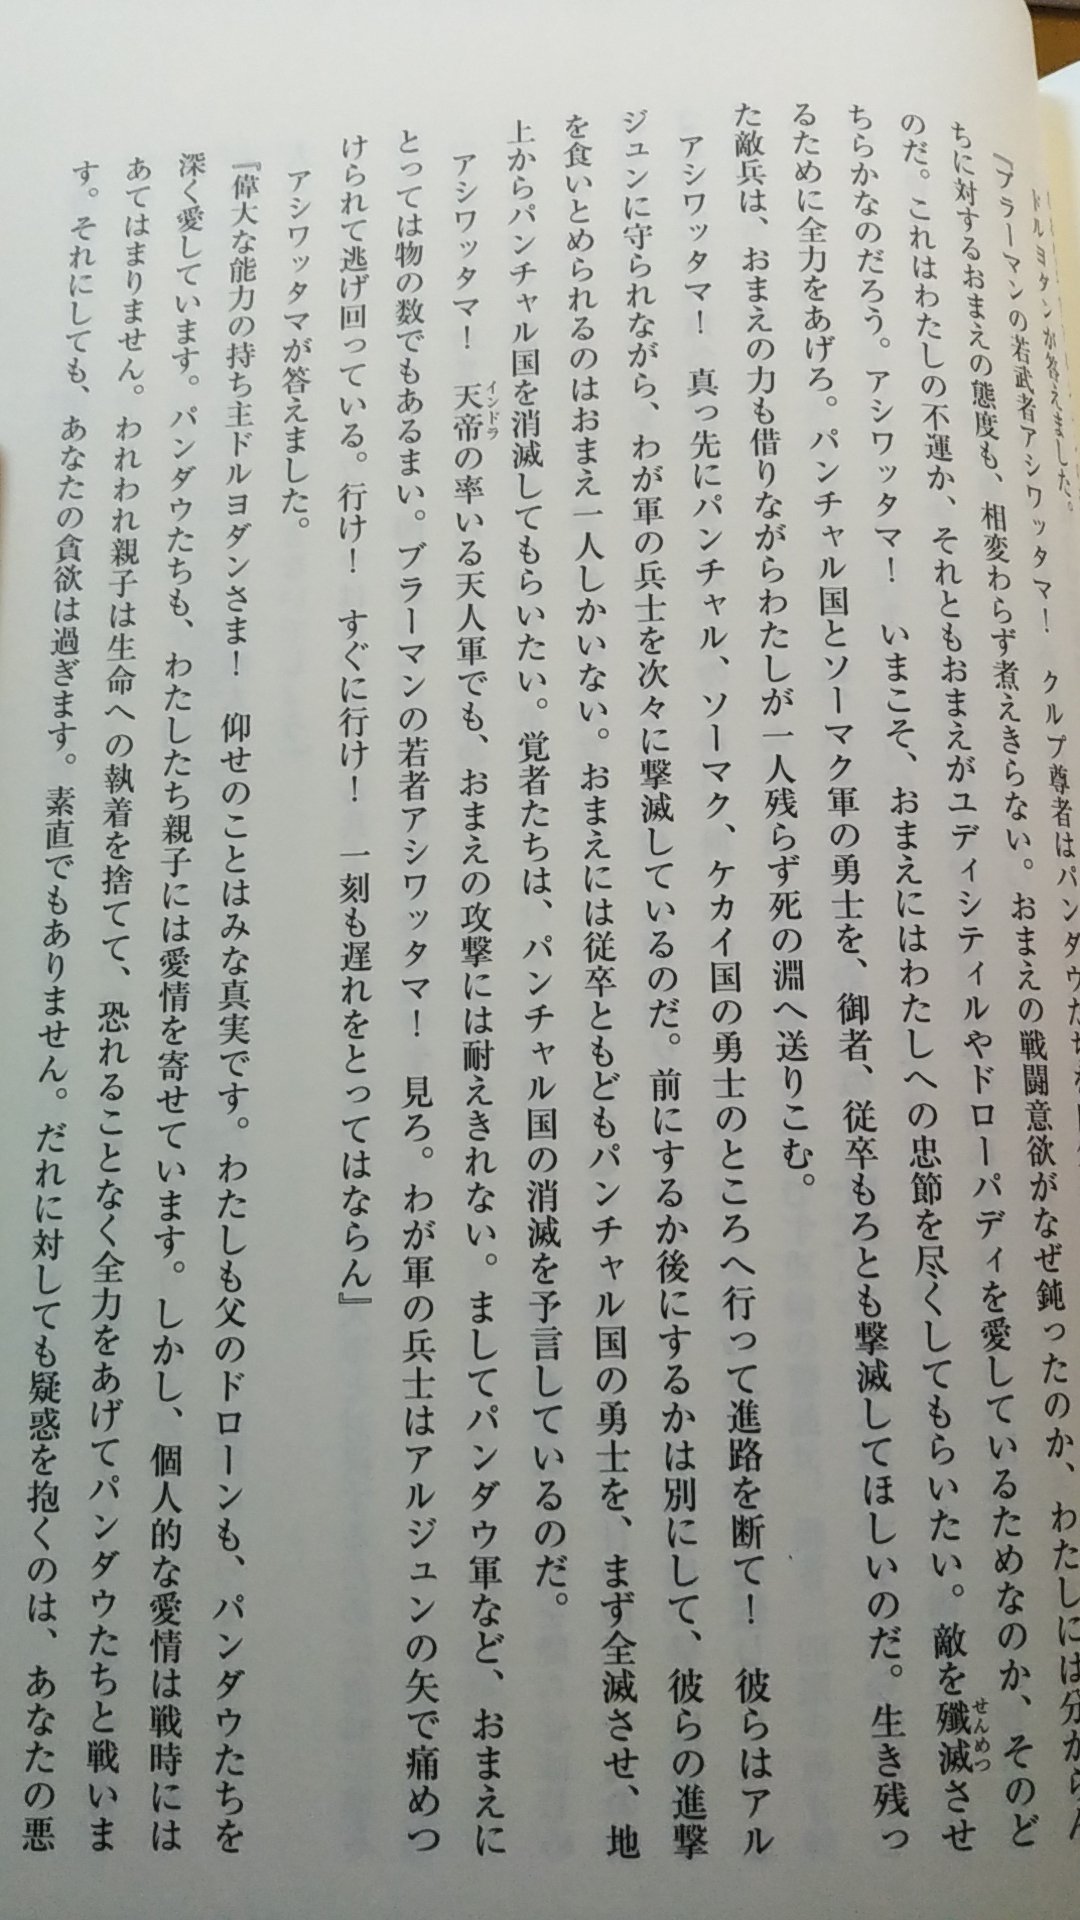 ドルヨダンが答えました。
『ブラーマンの若武者アシワッタマ！　クルプ尊者はパンダウたちを
ちに対するおまえの態度も、相変わらず煮えきらない。おまえの戦闘意欲がなぜ鈍ったのか、わたしには分からん
のだ。これはわたしの不運か、それともおまえがユディシティルやドローパディを愛しているためなのか、そのど
ちらかなのだろう。アシワッタマ！　いまこそ、おまえにはわたしへの忠節を尽くしてもらいたい。敵を殲滅させ
せんめつ
るために全力をあげろ。パンチャル国とソーマク軍の勇士を、御者、従卒もろとも撃滅してほしいのだ。生き残っ
た敵兵は、おまえの力も借りながらわたしが一人残らず死の淵へ送りこむ。
アシワッタマ！　真っ先にパンチャル、ソーマク、ケカイ国の勇士のところへ行って進路を断て！　彼らはアル
ジュンに守られながら、わが軍の兵士を次々に撃滅しているのだ。前にするか後にするかは別にして、彼らの進撃
を食いとめられるのはおまえ一人しかいない。おまえには従卒ともどもパンチャル国の勇士を、まず全滅させ、地
上からパンチャル国を消滅してもらいたい。覚者たちは、パンチャル国の消滅を予言しているのだ。
アシワッタマ！　天帝の率いる天人軍でも、おまえの攻撃には耐えきれない。ましてパンダウ軍など、おまえに
インドラ
とっては物の数でもあるまい。ブラーマンの若者アシワッタマ！　見ろ。わが軍の兵士はアルジュンの矢で痛めつ
けられて逃げ回っている。行け！　すぐに行け！　一刻も遅れをとってはならん』
アシワッタマが答えました。
『偉大な能力の持ち主ドルヨダンさま！　仰せのことはみな真実です。わたしも父のドローンも、パンダウたちを
深く愛しています。パンダウたちも、わたしたち親子には愛情を寄せています。しかし、個人的な愛情は戦時には
あてはまりません。われわれ親子は生命への執着を捨てて、恐れることなく全力をあげてパンダウたちと戦いま
す。それにしても、あなたの貪欲は過ぎます。素直でもありません。だれに対しても疑惑を抱くのは、あなたの悪